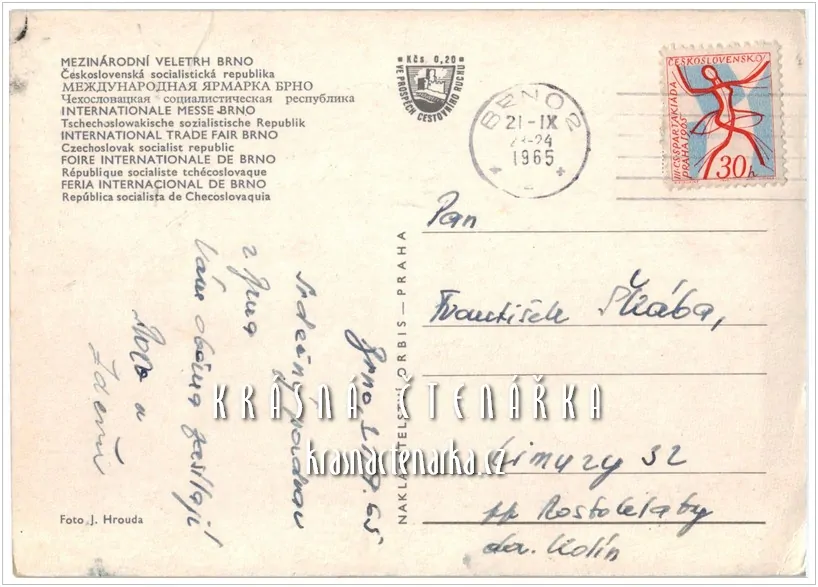 MEZINÁRODNÍ VELETRH BRNO
Československá socialistická republika
МЕЖДУНАРОДНАЯ ЯРМАРКА БРНО
Чехословацкая социалистическая республика
INTERNATIONALE MESSE BRNO
Tschechoslowakische sozialistische Republik
INTERNATIONAL TRADE FAIR BRNO
Czechoslovak socialist republic
FOIRE INTERNATIONALE DE BRNO
République socialiste tchécoslovaque
FERIA INTERNACIONAL DE BRNO
República socialista de Checoslovaquia
Kčs 0,20
VE PROSPĚCH CESTOVNÍHO RUCHU
BRNO 2
21-IX
1965
ČESKOSLOVENSKO
III. CS. SPARTAKIÁDA
PRAHA 1965
30h
Pan
František Škába,
32
pp Rostoklaty
Kolín
Brno
Srdečný pozdrav
z Brna
Vám oběma zasílají
a
Zdeni
NAKLADATELSTVÍ ORBIS—PRAHA
Foto J. Hrouda
KRÁSNÁ ČTENÁŘKA
krasnactenarka.cz